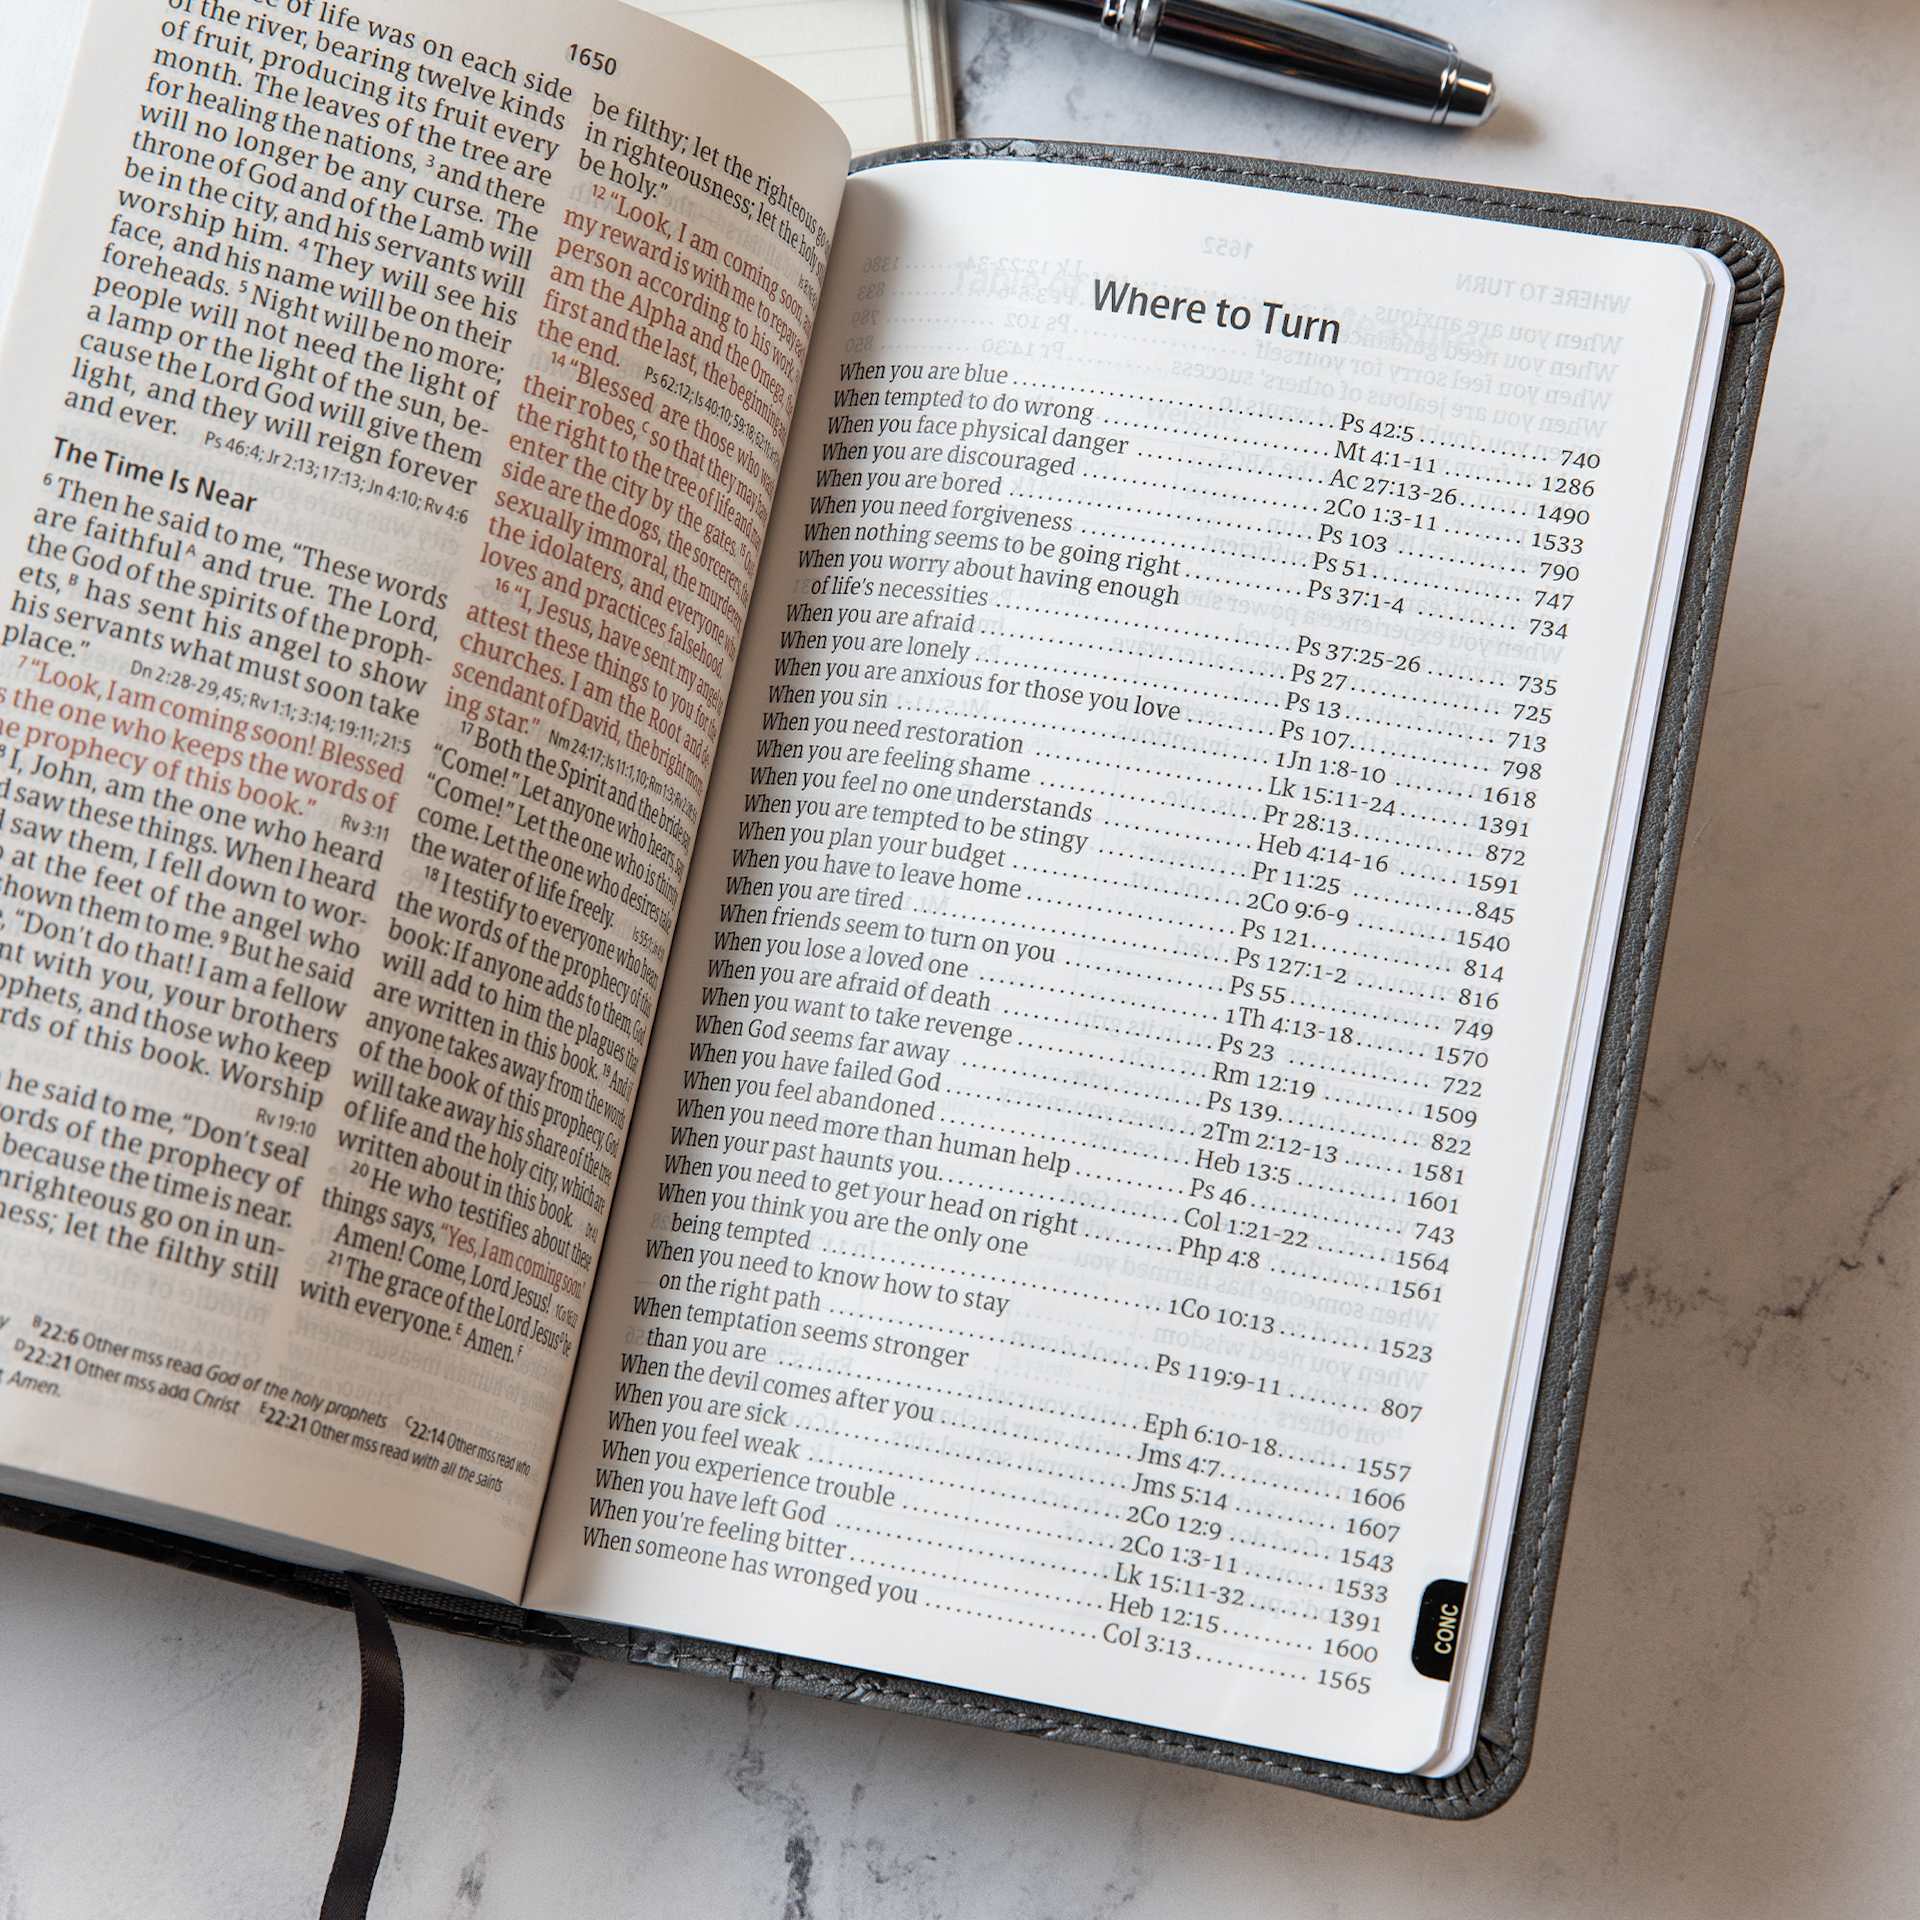 1650
ee of life was on each side
of the river, bearing twelve kinds
of fruit, producing its fruit every
month. The leaves of the tree are
for healing the nations, 3 and there
will no longer be any curse. The
throne of God and of the Lamb will
be in the city, and his servants will
worship him. 4 They will see his
face, and his name will be on their
foreheads. 5 Night will be no more;
people will not need the light of
a lamp or the light of the sun, be-
cause the Lord God will give them
light, and they will reign forever
and ever. Ps 46:4; Jr 2:13; 17:13; Jn 4:10; Rv 4:6
The Time Is Near
6 Then he said to me, “These words
are faithful A and true. The Lord,
the God of the spirits of the proph-
ets, B has sent his angel to show
his servants what must soon take
place.” Dn 2:28-29,45; Rv 1:1; 3:14; 19:11; 21:5
7 “Look, I am coming soon! Blessed
s the one who keeps the words of
he prophecy of this book.” Rv 3:11
8 I, John, am the one who heard
d saw these things. When I heard
saw them, I fell down to wor-
at the feet of the angel who
shown them to me. 9 But he said
“Don’t do that! I am a fellow
nt with you, your brothers
ophets, and those who keep
rds of this book. Worship
Rv 19:10
he said to me, “Don’t seal
ords of the prophecy of
because the time is near.
nrighteous go on in un-
ness; let the filthy still
be filthy; let the righteous go
in righteousness; let the holy
be holy.”
12 “Look, I am coming soon, and
my reward is with me to repay each
person according to his work.
am the Alpha and the Omega, the
first and the last, the beginning and
the end. Ps 62:12; Is 40:10; 59:18; 62:11
14 “Blessed are those who wash
their robes, C so that they may have
the right to the tree of life and may
enter the city by the gates. 15
side are the dogs, the sorcerers, the
sexually immoral, the murderers,
the idolaters, and everyone who
loves and practices falsehood.
16 “I, Jesus, have sent my angel to
attest these things to you for the
churches. I am the Root and de-
scendant of David, the bright morn-
ing star.” Nm 24:17; Is 11:1,10; Rm 1:3; Rv 2:28
17 Both the Spirit and the bride say,
“Come!” Let anyone who hears, say,
“Come!” Let the one who is thirsty
come. Let the one who desires take
the water of life freely. Is 55:1
18 I testify to everyone who hears
the words of the prophecy of this
book: If anyone adds to them, God
will add to him the plagues that
are written in this book. 19 And if
anyone takes away from the words
of the book of this prophecy, God
will take away his share of the tree
of life and the holy city, which are
written about in this book.
20 He who testifies about these
things says, “Yes, I am coming soon.”
Amen! Come, Lord Jesus!
21 The grace of the Lord Jesus D be
with everyone. E Amen. F
B 22:6 Other mss read God of the holy prophets C 22:14 Other mss read who
D 22:21 Other mss add Christ E 22:21 Other mss read with all the saints
Amen.
Where to Turn
When you are blue .......... Ps 42:5 .......... 740
When tempted to do wrong .......... Mt 4:1-11 .......... 1286
When you face physical danger .......... Ac 27:13-26 .......... 1490
When you are discouraged .......... 2Co 1:3-11 .......... 1533
When you are bored .......... Ps 103 .......... 790
When you need forgiveness .......... Ps 51 .......... 747
When nothing seems to be going right .......... Ps 37:1-4 .......... 734
When you worry about having enough
of life’s necessities .......... Ps 37:25-26 .......... 735
When you are afraid .......... Ps 27 .......... 725
When you are lonely .......... Ps 13 .......... 713
When you are anxious for those you love .......... Ps 107 .......... 798
When you sin .......... 1Jn 1:8-10 .......... 1618
When you need restoration .......... Lk 15:11-24 .......... 1391
When you are feeling shame .......... Pr 28:13 .......... 872
When you feel no one understands .......... Heb 4:14-16 .......... 1591
When you are tempted to be stingy .......... Pr 11:25 .......... 845
When you plan your budget .......... 2Co 9:6-9 .......... 1540
When you have to leave home .......... Ps 121 .......... 814
When you are tired .......... Ps 127:1-2 .......... 816
When friends seem to turn on you .......... Ps 55 .......... 749
When you lose a loved one .......... 1Th 4:13-18 .......... 1570
When you are afraid of death .......... Ps 23 .......... 722
When you want to take revenge .......... Rm 12:19 .......... 1509
When God seems far away .......... Ps 139 .......... 822
When you have failed God .......... 2Tm 2:12-13 .......... 1581
When you feel abandoned .......... Heb 13:5 .......... 1601
When you need more than human help .......... Ps 46 .......... 743
When your past haunts you .......... Col 1:21-22 .......... 1564
When you need to get your head on right .......... Php 4:8 .......... 1561
When you think you are the only one
being tempted .......... 1Co 10:13 .......... 1523
When you need to know how to stay
on the right path .......... Ps 119:9-11 .......... 807
When temptation seems stronger
than you are .......... Eph 6:10-18 .......... 1557
When the devil comes after you .......... Jms 4:7 .......... 1606
When you are sick .......... Jms 5:14 .......... 1607
When you feel weak .......... 2Co 12:9 .......... 1543
When you experience trouble .......... 2Co 1:3-11 .......... 1533
When you have left God .......... Lk 15:11-32 .......... 1391
When you’re feeling bitter .......... Heb 12:15 .......... 1600
When someone has wronged you .......... Col 3:13 .......... 1565
CONC